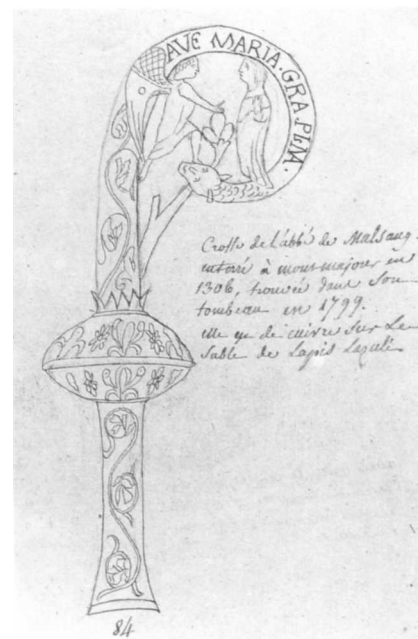 AVE MARIA. GRA. PLM.
Crosse de l'abbé de Malsang.
enterré à mont-majour en
1306, trouvée dans Son
tombeau en 1799.
elle est de cuivre Sur Le
Sable de Lapis Lazuli
84